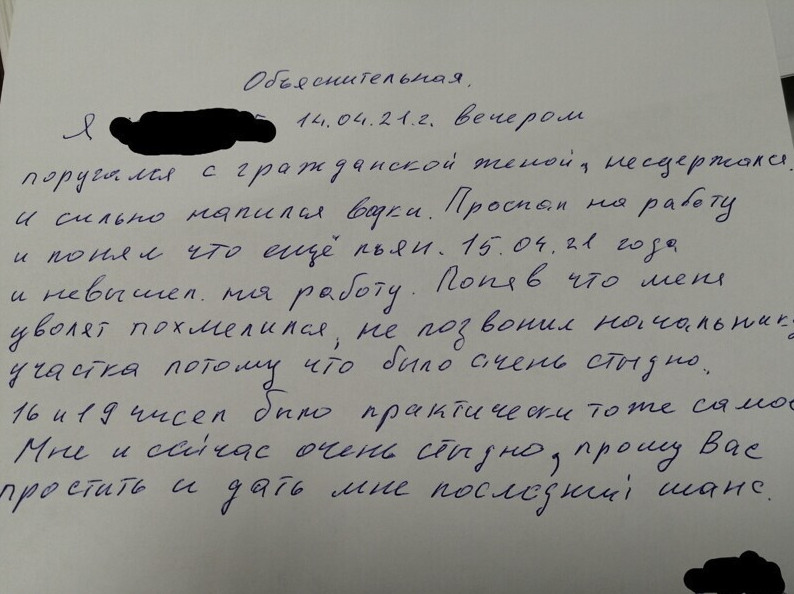 Объяснительная.
Я 14.04.21.г. вечером
поругался с гражданской женой, несдержался.
и сильно напился водки. Проспал на работу
и понял что ещё пьян. 15.04.21 года
и невышел. на работу. Поняв что меня
уволят похмелился, не позвонил начальнику
участка потому что было очень стыдно.
16 и 19 чисел было практически тоже самое
Мне и сейчас очень стыдно, прошу Вас
простить и дать мне последний шанс.